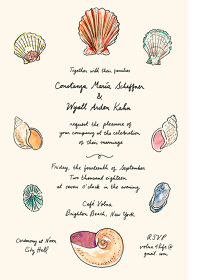 Together with their families
Constanza María Scheffner
&
Wyatt Arden Kahn
request the pleasure of
your company at the celebration
of their marriage
Friday, the fourteenth of September
Two thousand eighteen
at seven o'clock in the evening
Café Volna
Brighton Beach, New York
Ceremony at Noon
City Hall
RSVP
volna4life@
gmail.com